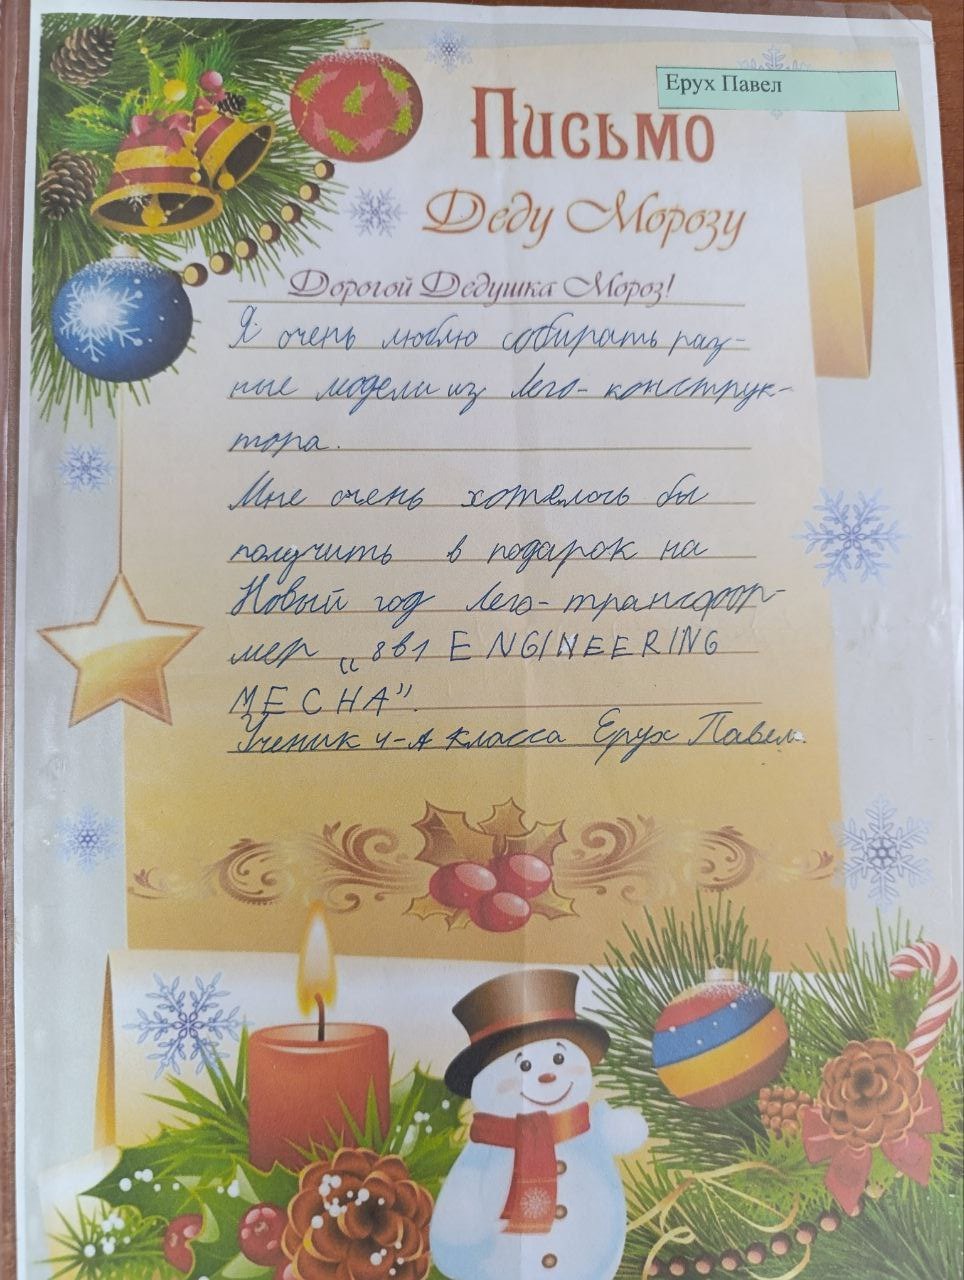 Ерух Павел
Письмо
Деду Морозу
Дорогой Дедушка Мороз!
Я очень люблю собирать раз-
ные модели из лего-конструк-
тора.
Мне очень хотелось бы
получить в подарок на
Новый год лего-трансфор-
мер „8в1 ENGINEERING
MECHA”.
Ученик 4-А класса Ерух Павел.